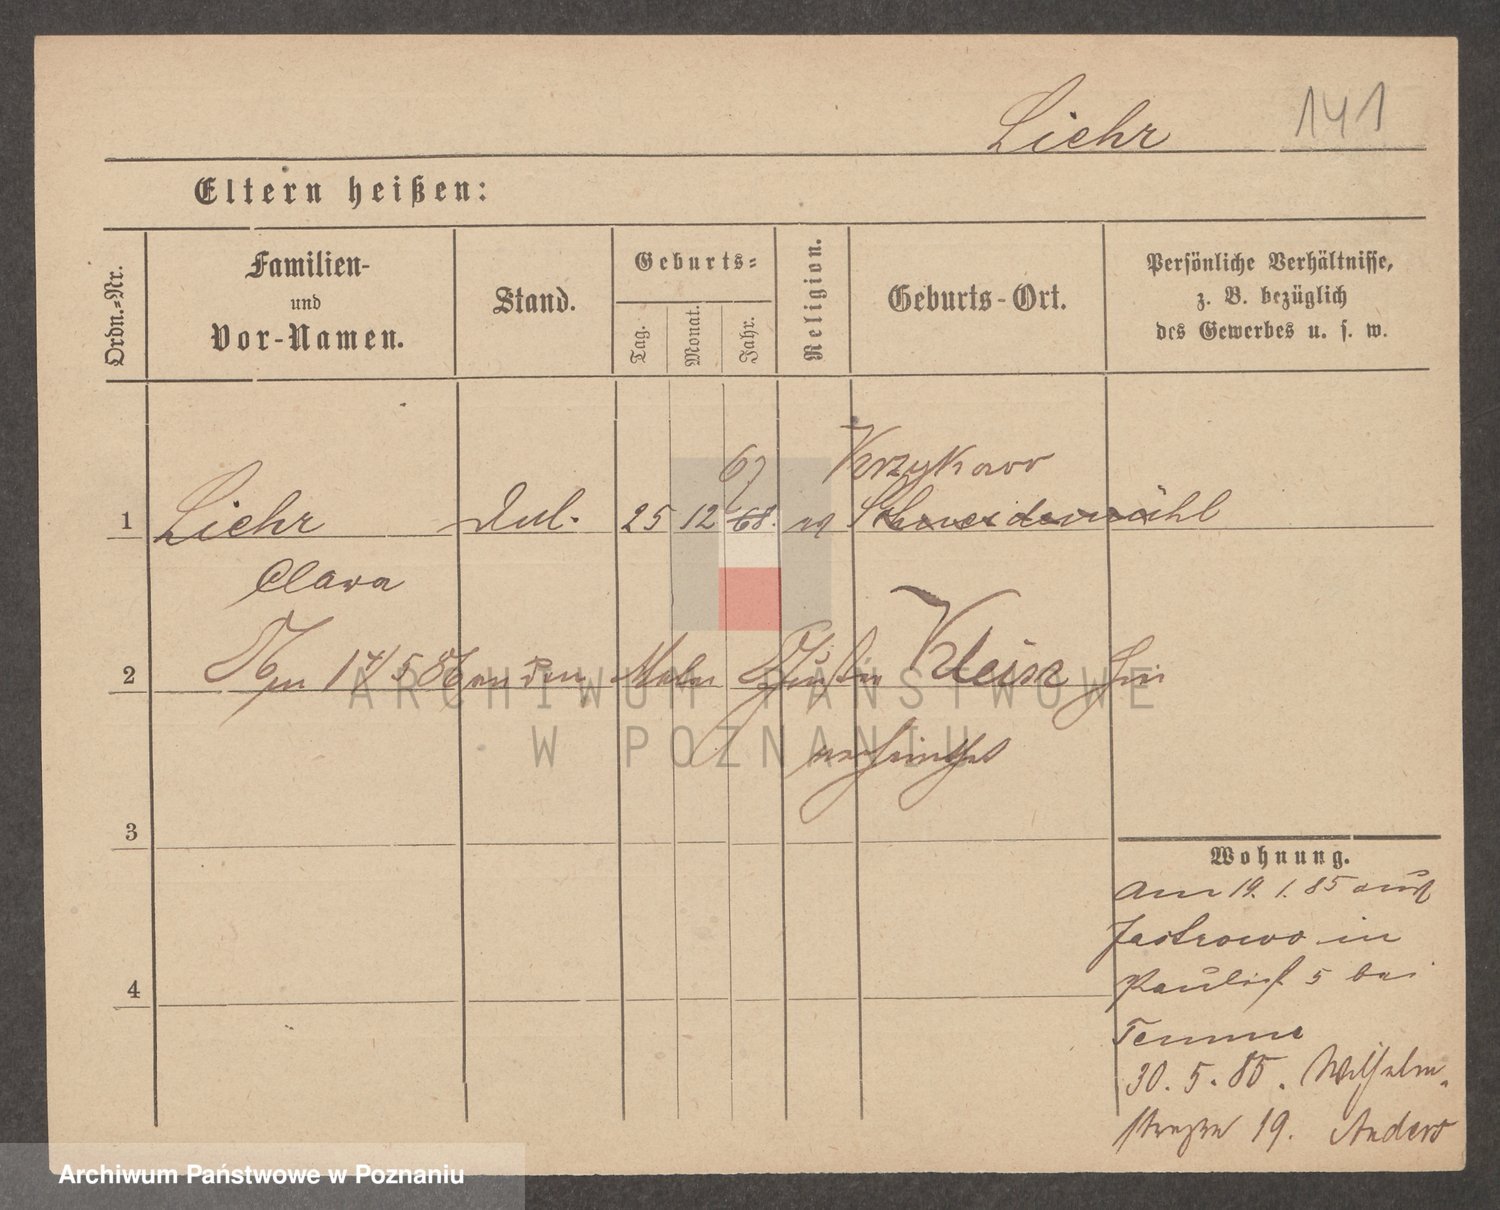 Liehr 141
Eltern heißen:
Ordn.-Nr.
Familien-
und
Vor-Namen.
Stand.
Geburts-
Tag.
Monat.
Jahr.
Religion.
Geburts-Ort.
Persönliche Verhältnisse,
z. B. bezüglich
des Gewerbes u. s. w.
67 Krzykowo
1 Liehr 25 12 68. Schneidemühl
Clara
2 17/5 86 an den Maler Kleisz hier
verheirathet
3
Wohnung.
am 19. 1. 85 aus
Jastrowo in
Paulist. 5 bei
4
Temme
30. 5. 85. Wilhelm-
straße 19. Anders
ARCHIWUM PAŃSTWOWE
W POZNANIU
Archiwum Państwowe w Poznaniu